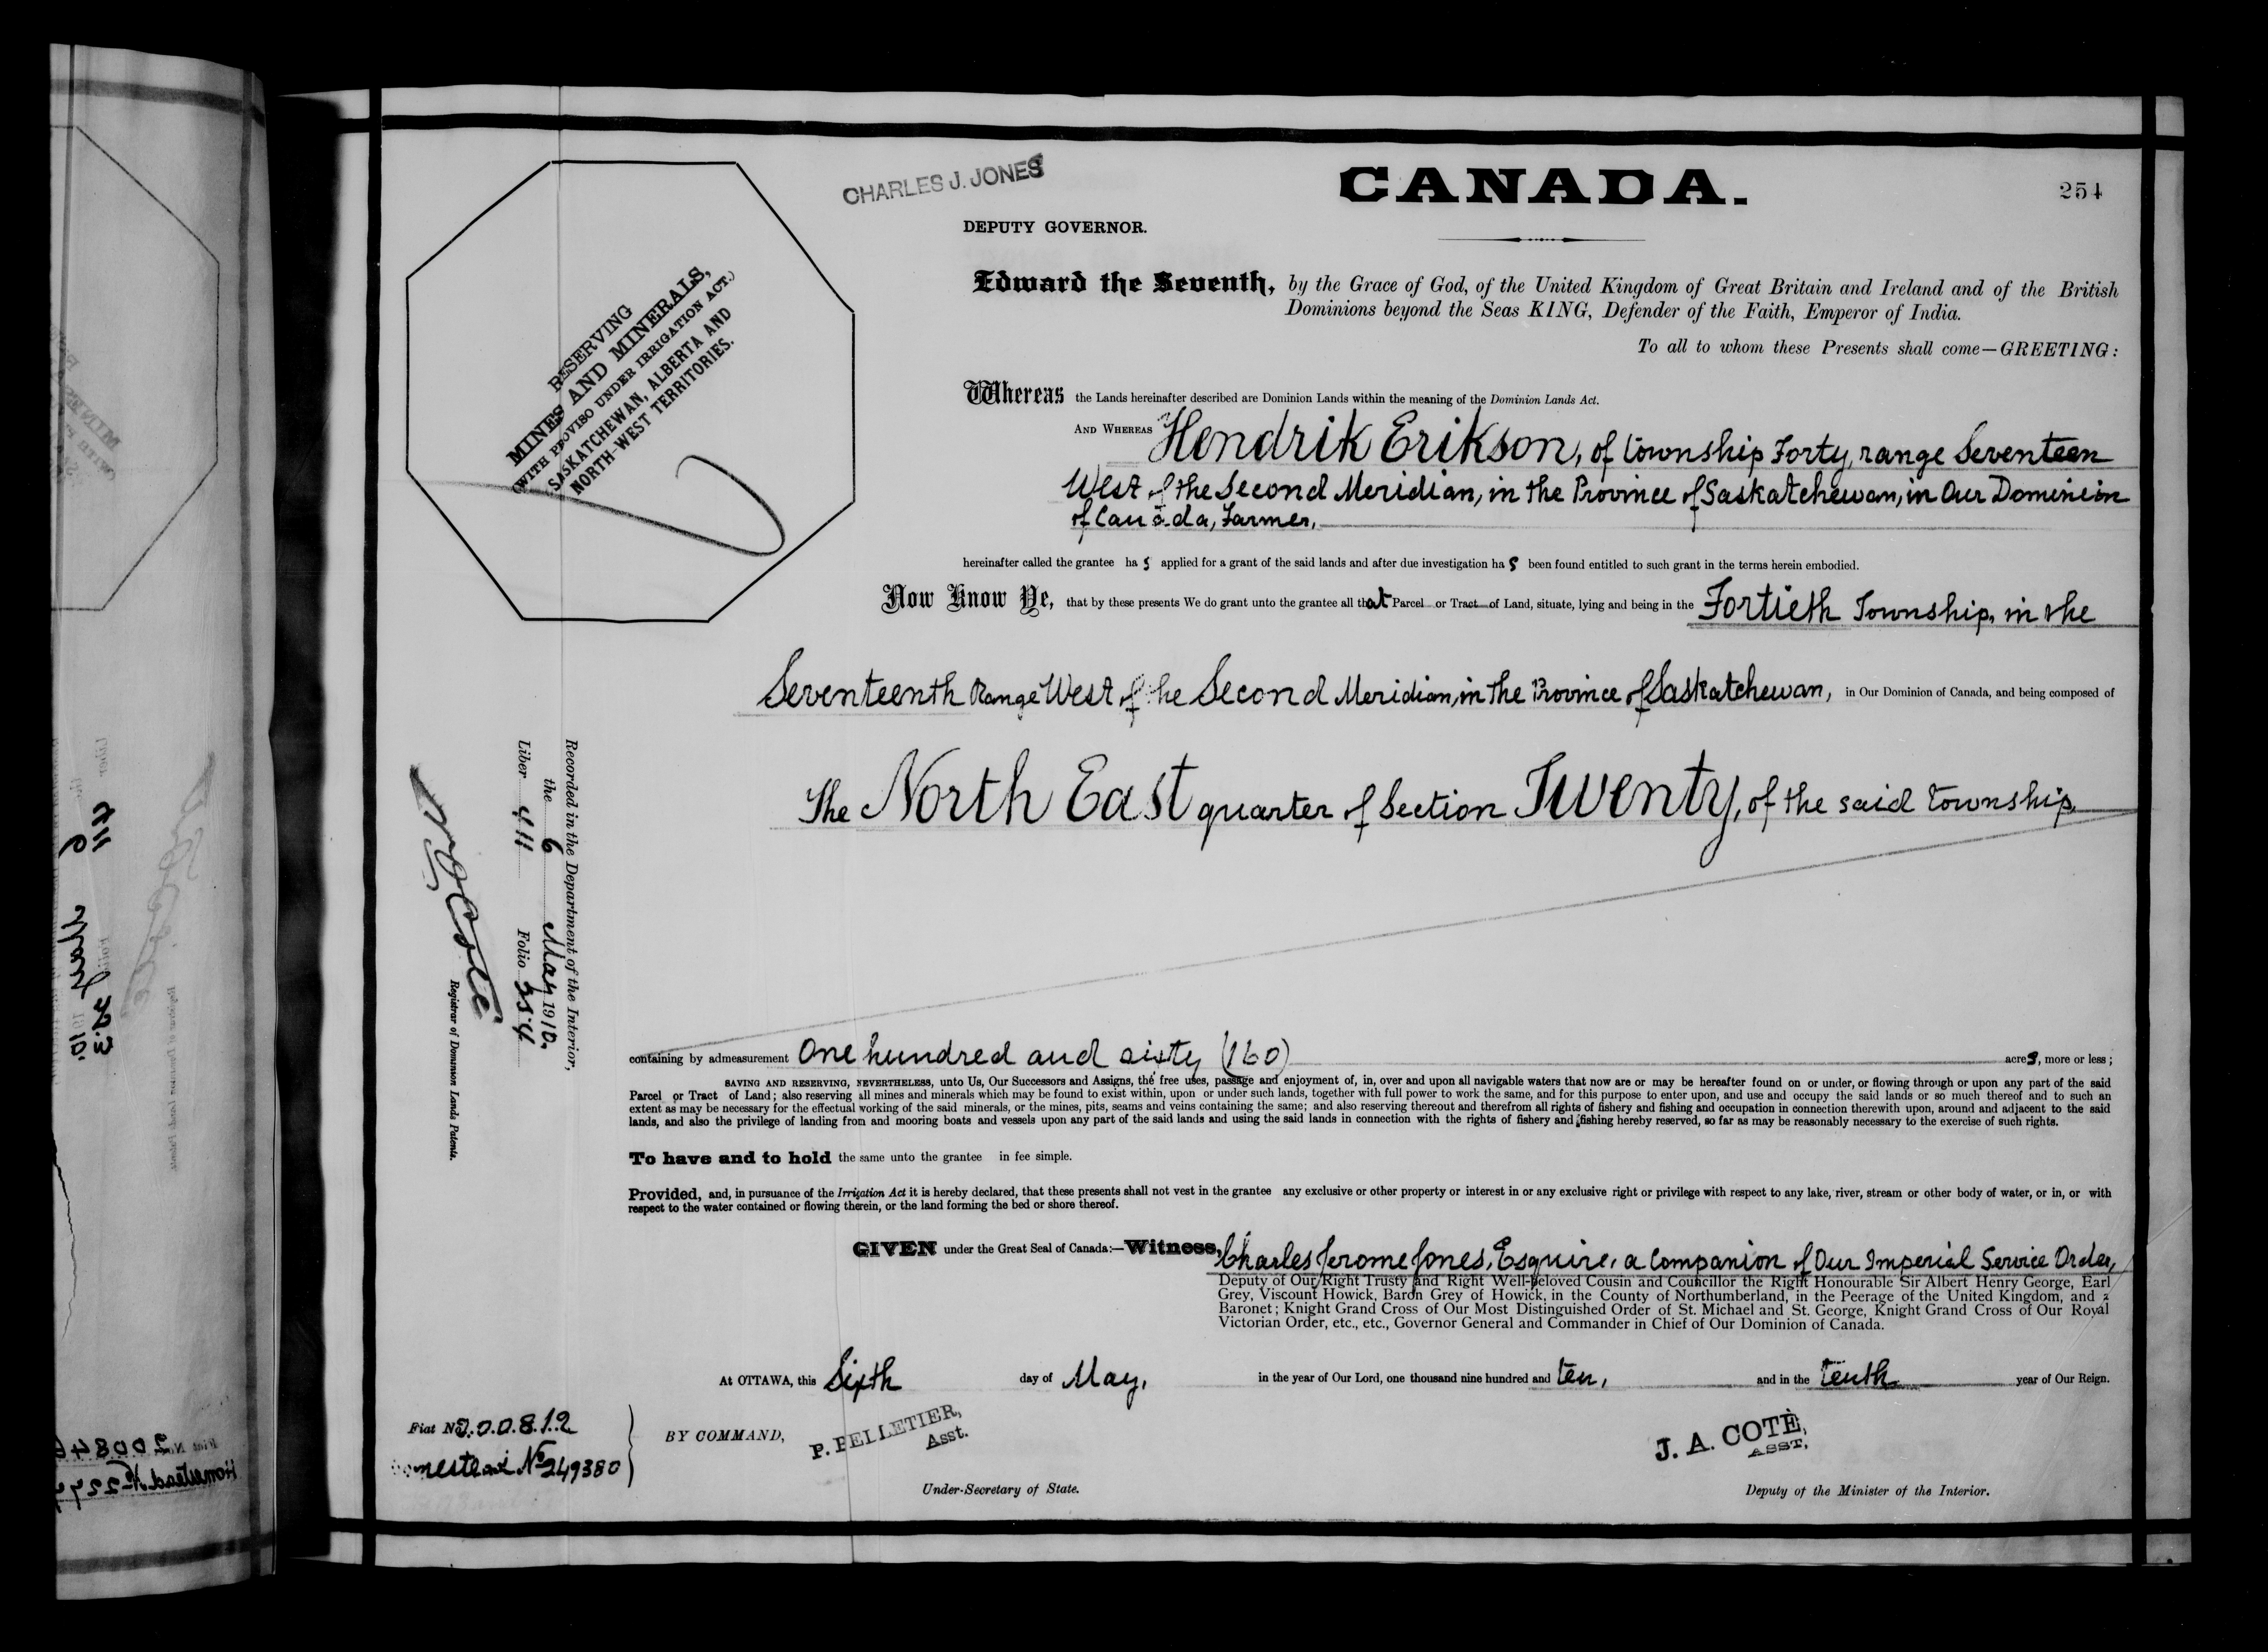 CHARLES J. JONES
CANADA.
254
DEPUTY GOVERNOR.
Edward the Seventh, by the Grace of God, of the United Kingdom of Great Britain and Ireland and of the British
Dominions beyond the Seas KING, Defender of the Faith, Emperor of India.
To all to whom these Presents shall come—GREETING:
RESERVING
MINES AND MINERALS,
(WITH PROVISO UNDER IRRIGATION ACT.)
SASKATCHEWAN, ALBERTA AND
NORTH-WEST TERRITORIES.
Whereas the Lands hereinafter described are Dominion Lands within the meaning of the Dominion Lands Act.
AND WHEREAS Hendrik Erikson, of township Forty, range Seventeen
West of the Second Meridian, in the Province of Saskatchewan, in Our Dominion
of Canada, Farmer,
hereinafter called the grantee has applied for a grant of the said lands and after due investigation has been found entitled to such grant in the terms herein embodied.
Now Know Ye, that by these presents We do grant unto the grantee all that Parcel or Tract of Land, situate, lying and being in the Fortieth Township, in the
Seventeenth Range West of the Second Meridian, in the Province of Saskatchewan, in Our Dominion of Canada, and being composed of
The North East quarter of Section Twenty, of the said township
Recorded in the Department of the Interior,
the 6 May 1910,
Liber 411 Folio 254
N O Coté
Registrar of Dominion Lands Patents.
containing by admeasurement One hundred and sixty (160) acres, more or less;
SAVING AND RESERVING, NEVERTHELESS, unto Us, Our Successors and Assigns, the free uses, passage and enjoyment of, in, over and upon all navigable waters that now are or may be hereafter found on or under, or flowing through or upon any part of the said
Parcel or Tract of Land; also reserving all mines and minerals which may be found to exist within, upon or under such lands, together with full power to work the same, and for this purpose to enter upon, and use and occupy the said lands or so much thereof and to such an
extent as may be necessary for the effectual working of the said minerals, or the mines, pits, seams and veins containing the same; and also reserving thereout and therefrom all rights of fishery and fishing and occupation in connection therewith upon, around and adjacent to the said
lands, and also the privilege of landing from and mooring boats and vessels upon any part of the said lands and using the said lands in connection with the rights of fishery and fishing hereby reserved, so far as may be reasonably necessary to the exercise of such rights.
To have and to hold the same unto the grantee in fee simple.
Provided, and, in pursuance of the Irrigation Act it is hereby declared, that these presents shall not vest in the grantee any exclusive or other property or interest in or any exclusive right or privilege with respect to any lake, river, stream or other body of water, or in, or with
respect to the water contained or flowing therein, or the land forming the bed or shore thereof.
GIVEN under the Great Seal of Canada:—Witness, Charles Jerome Jones, Esquire, a Companion of Our Imperial Service Order,
Deputy of Our Right Trusty and Right Well-Beloved Cousin and Councillor the Right Honourable Sir Albert Henry George, Earl
Grey, Viscount Howick, Baron Grey of Howick, in the County of Northumberland, in the Peerage of the United Kingdom, and a
Baronet; Knight Grand Cross of Our Most Distinguished Order of St. Michael and St. George, Knight Grand Cross of Our Royal
Victorian Order, etc., etc., Governor General and Commander in Chief of Our Dominion of Canada.
At OTTAWA, this Sixth day of May, in the year of Our Lord, one thousand nine hundred and ten, and in the tenth year of Our Reign.
Fiat No. 200812
Homestead No 249380
BY COMMAND,
P. PELLETIER,
Asst.
J. A. COTÈ,
ASST,
Under-Secretary of State.
Deputy of the Minister of the Interior.